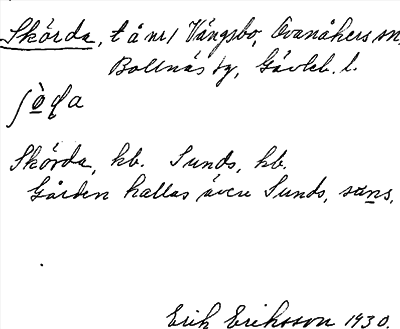 Skórda, t å nr 1 Vängsbo, Ovanåkers sn,
Bollnäs tg, Gävleb. l.
Skórda, hb. Sunds, hb.
Gården kallas även Sunds, sans,
Erik Eriksson 1930.